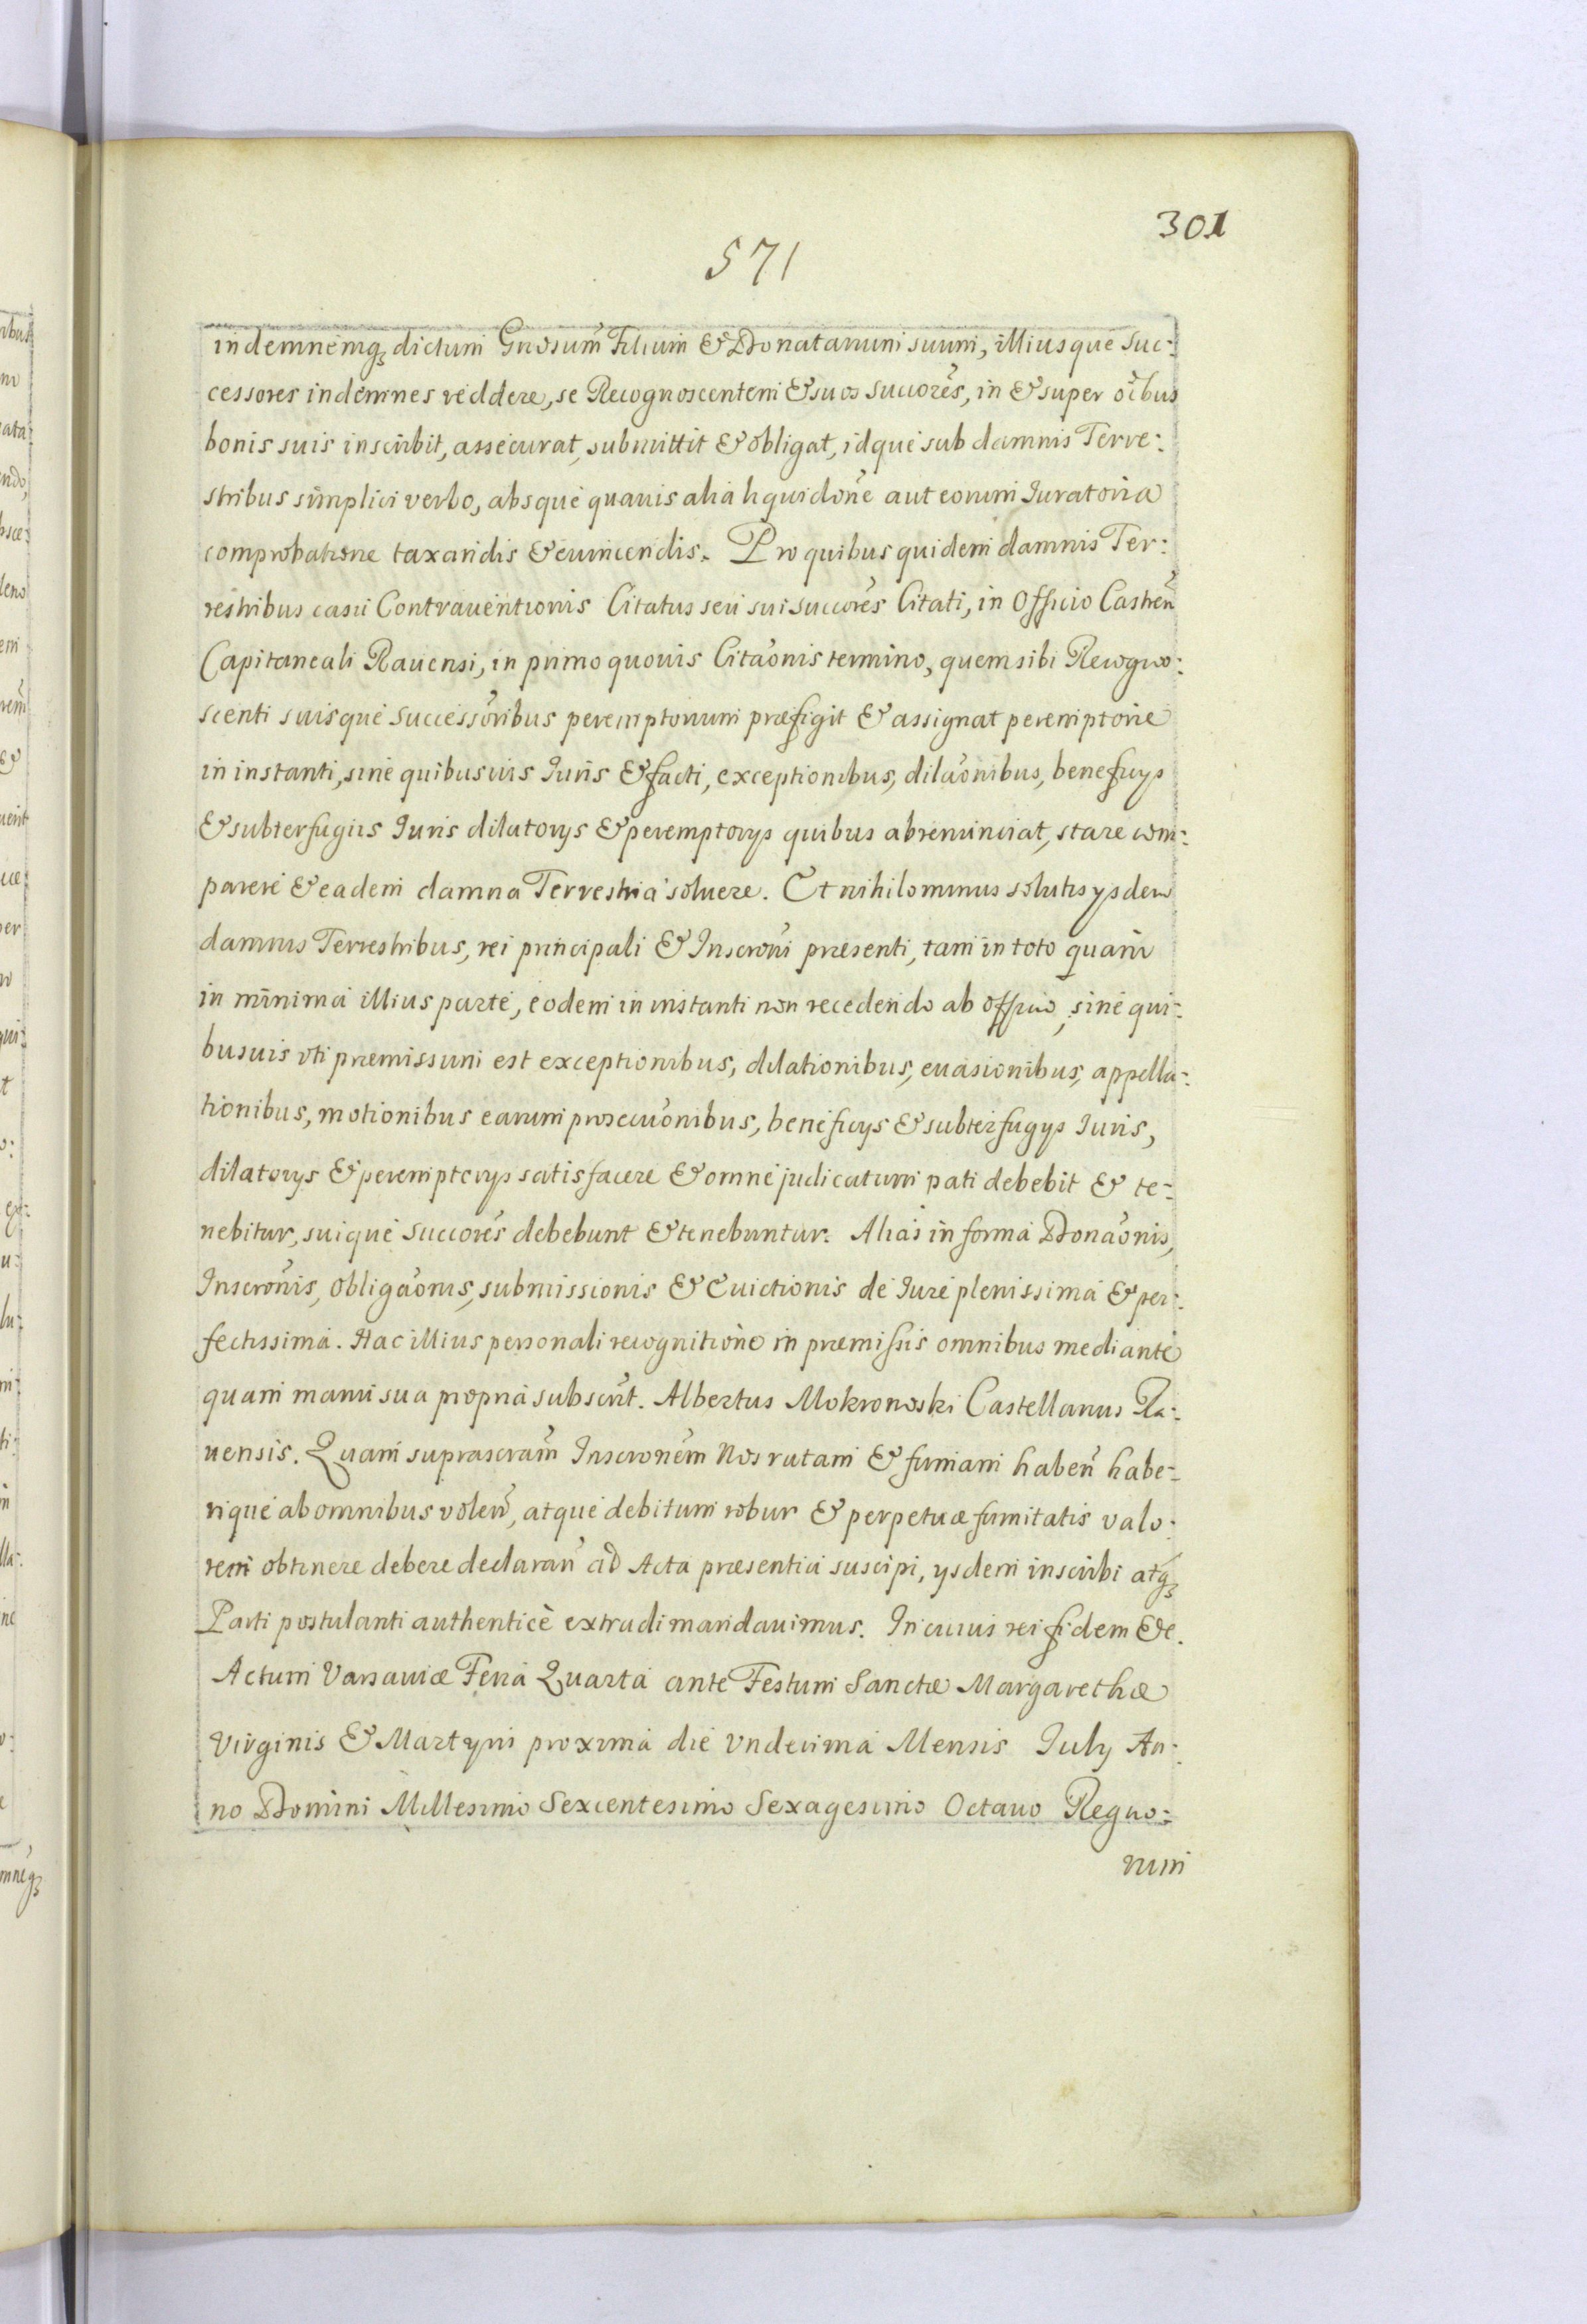 301
571
indemnemq₃ dictum Gnosum̃ Filium & Donatarium suum, illiusque Suc:
cessores indemnes reddere, se Recognoscentem & suos succores̃, in & super oĩbus
bonis suis inscribit, assecurat, submittit & obligat, idque sub damnis Terre:
stribus simplici verbo, absque quauis alia liquidoñe aut eorum Iuratoria
comprobatione taxandis & euincendis. Pro quibus quidem damnis Ter:
restribus casu Contrauentionis Citatus seu sui succores̃ Citati, in Officio Castreñ
Capitaneali Rauensi, in primo quouis Citaõnis termino, quem sibi Recogno:
scenti suisque successoribus peremptorium præfigit & assignat peremptorie
in instanti, sine quibusuis Iuris & facti, exceptionibus, dilaõnibus, beneficys
& subterfugiis Iuris dilatorys & peremptorys quibus abrenunciat, stare com:
parere & eadem damna Terrestria soluere. Et nihilominus solutis ysdem
damnis Terrestribus, rei principali & Inscroñi præsenti, tam in toto quam
in minima illius parte, eodem in instanti non recedendo ab officio, sine qui:
busuis vti præmissum est exceptionibus, dilationibus, euasionibus, appella:
tionibus, motionibus earum prosecuõnibus, beneficys & subterfugys Iuris,
dilatorys & peremptorys satisfacere & omne judicatum pati debebit & te:
nebitur, suique succores̃ debebunt & tenebuntur. Alias in forma Donaõnis,
Inscroñis, obligaõnis, submissionis & Euictionis de Iure plenissima & per:
fectissima. Hac illius personali recognitione in præmissis omnibus mediante
quam manu sua propria subscrĩt. Albertus Mokronoski Castellanus Ra:
uensis. Quam suprascram̃ Inscronem̃ Nos ratam & firmam habeñ habe:
rique ab omnibus voleñ, atque debitum robur & perpetuæ firmitatis valo:
rem obtinere debere declarañ ad Acta præsentia suscipi, ysdem inscribi atq₃
Parti postulanti authenticè extradi mandauimus. In cuius rei fidem &c.
Actum Varsauiæ Feria Quarta ante Festum Sanctæ Margarethæ
Virginis & Martyris proxima die Vndecima Mensis July An:
no Domini Millesimo Sexcentesimo Sexagesimo Octauo Regno:
rum